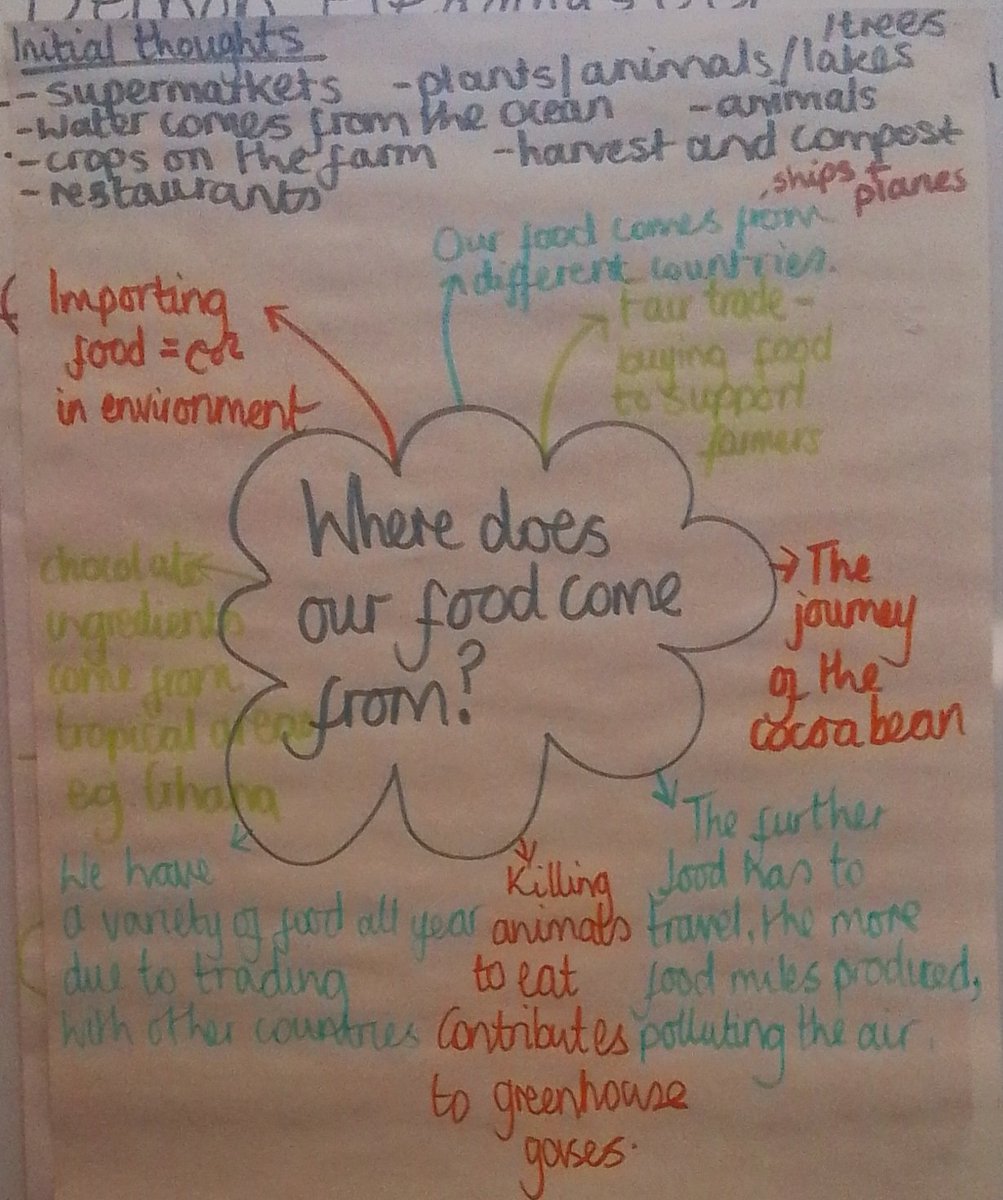 Initial thoughts
/trees
- supermarkets - plants/animals/lakes
- water comes from the ocean - animals
- crops on the farm - harvest and compost
- restaurants
ships + planes
Our food comes from
different countries.
Importing
food = co2
in environment
Fair trade -
buying food
to support
farmers
Where does
our food come
from?
chocolate
ingredients
come from
tropical areas
eg. Ghana
The
journey
of the
cocoa bean
We have
a variety of food all year
due to trading
with other countries
Killing
animals
to eat
contributes
to greenhouse
gases.
The further
food has to
travel, the more
food miles produced,
polluting the air.